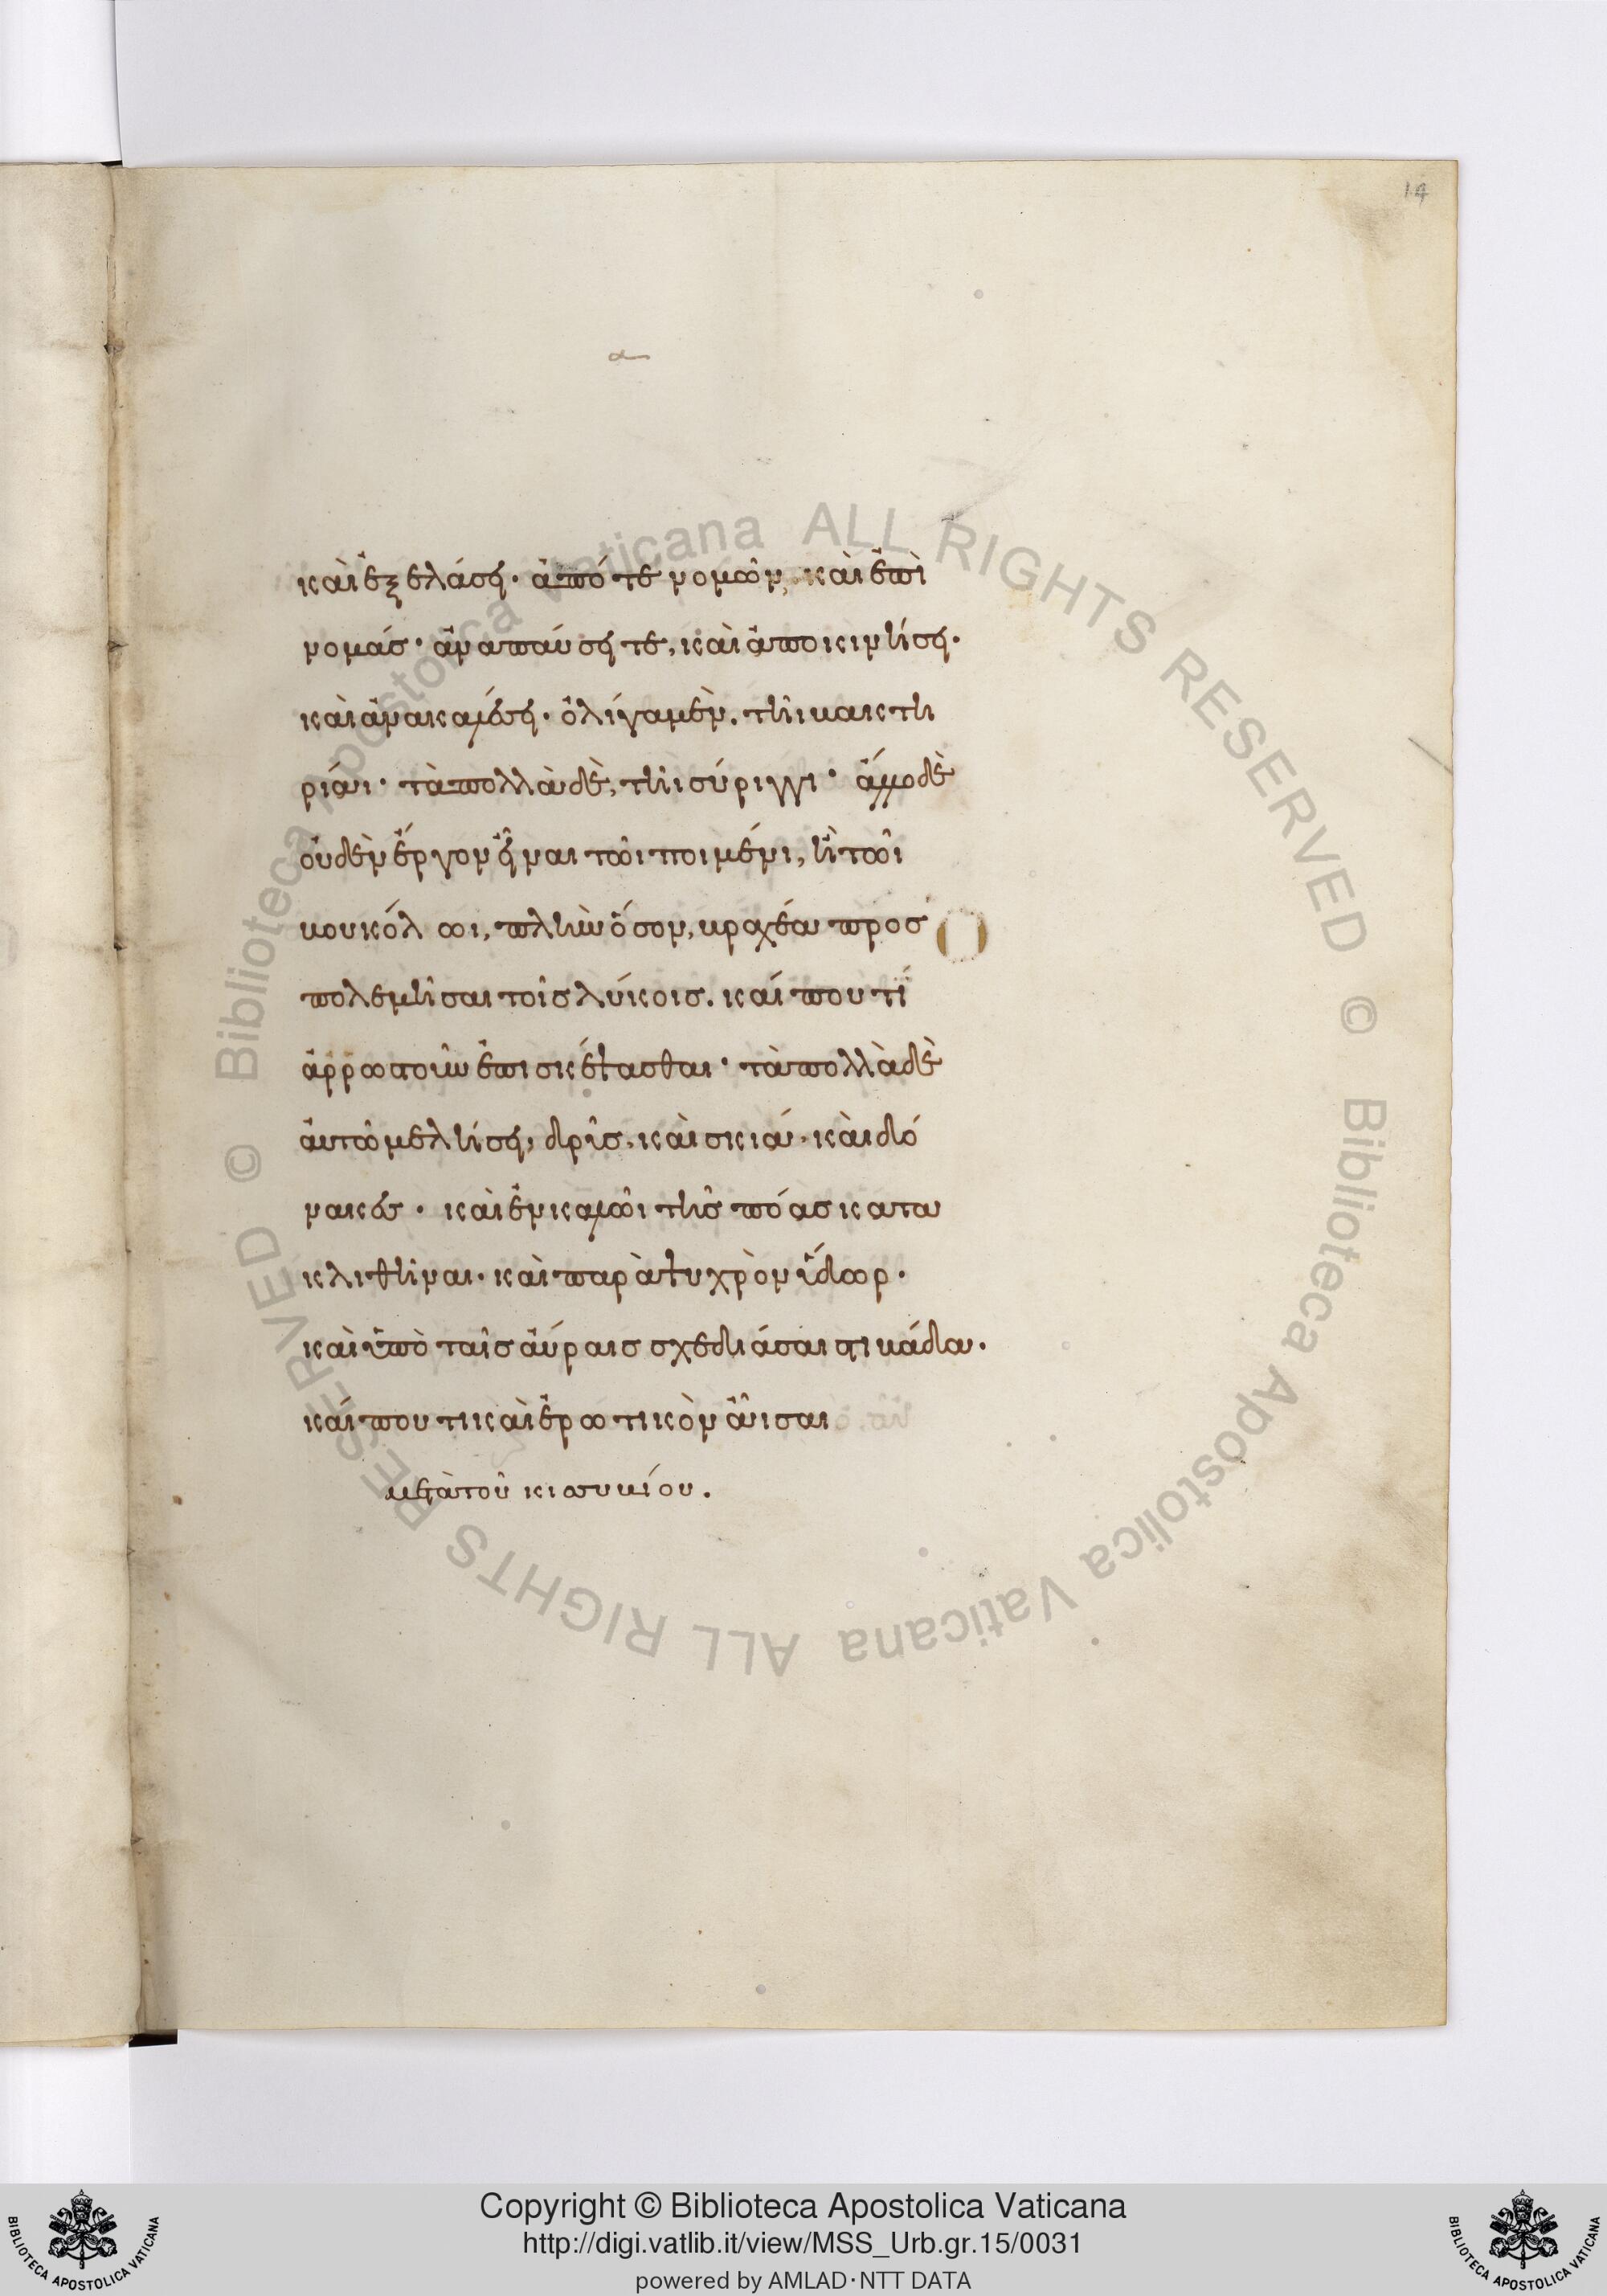 14
καὶ ἐξελάσει· ἀπό τε νομῶν, καὶ ἐπὶ
νομάσ· ἀναπαύσει τε, καὶ ἀποκινήσει·
καὶ ἀνακαλέσει· ὀλίγα μὲν. τῆι βακτη
ρίαι· τὰ πολλὰ δὲ, τῆι σύριγγι· ἄλλο δὲ
οὐδὲν ἔργον εἶναι τῶι ποιμένι, ἢ τῶι
βουκόλωι, πλὴν ὅσον, βραχέα προσ
πολεμῆσαι τοῖσ λύκοισ. καί που τί
ἀρρωστοῦν ἐπισκέψασθαι· τὰ πολλὰ δὲ
αὐτῶ μελήσει, δρῦσ, καὶ σκιαὶ· καὶ δό
νακεσ· καὶ ἐν καλῶι τῆσ πόασ κατα
κλιθῆναι· καὶ παρὰ ψυχρὸν ὕδωρ·
καὶ ὑπὸ ταῖσ αὔραισ σχεδιάσαι στιβάδα·
καί που τι καὶ ἐρωτικὸν ἆισαι
μετὰ τοῦ κισσυβίου.
Biblioteca Apostolica Vaticana ALL RIGHTS RESERVED © Biblioteca Apostolica Vaticana ALL RIGHTS RESERVED ©
Copyright © Biblioteca Apostolica Vaticana
http://digi.vatlib.it/view/MSS_Urb.gr.15/0031
powered by AMLAD·NTT DATA
BIBLIOTECA APOSTOLICA VATICANA
BIBLIOTECA APOSTOLICA VATICANA